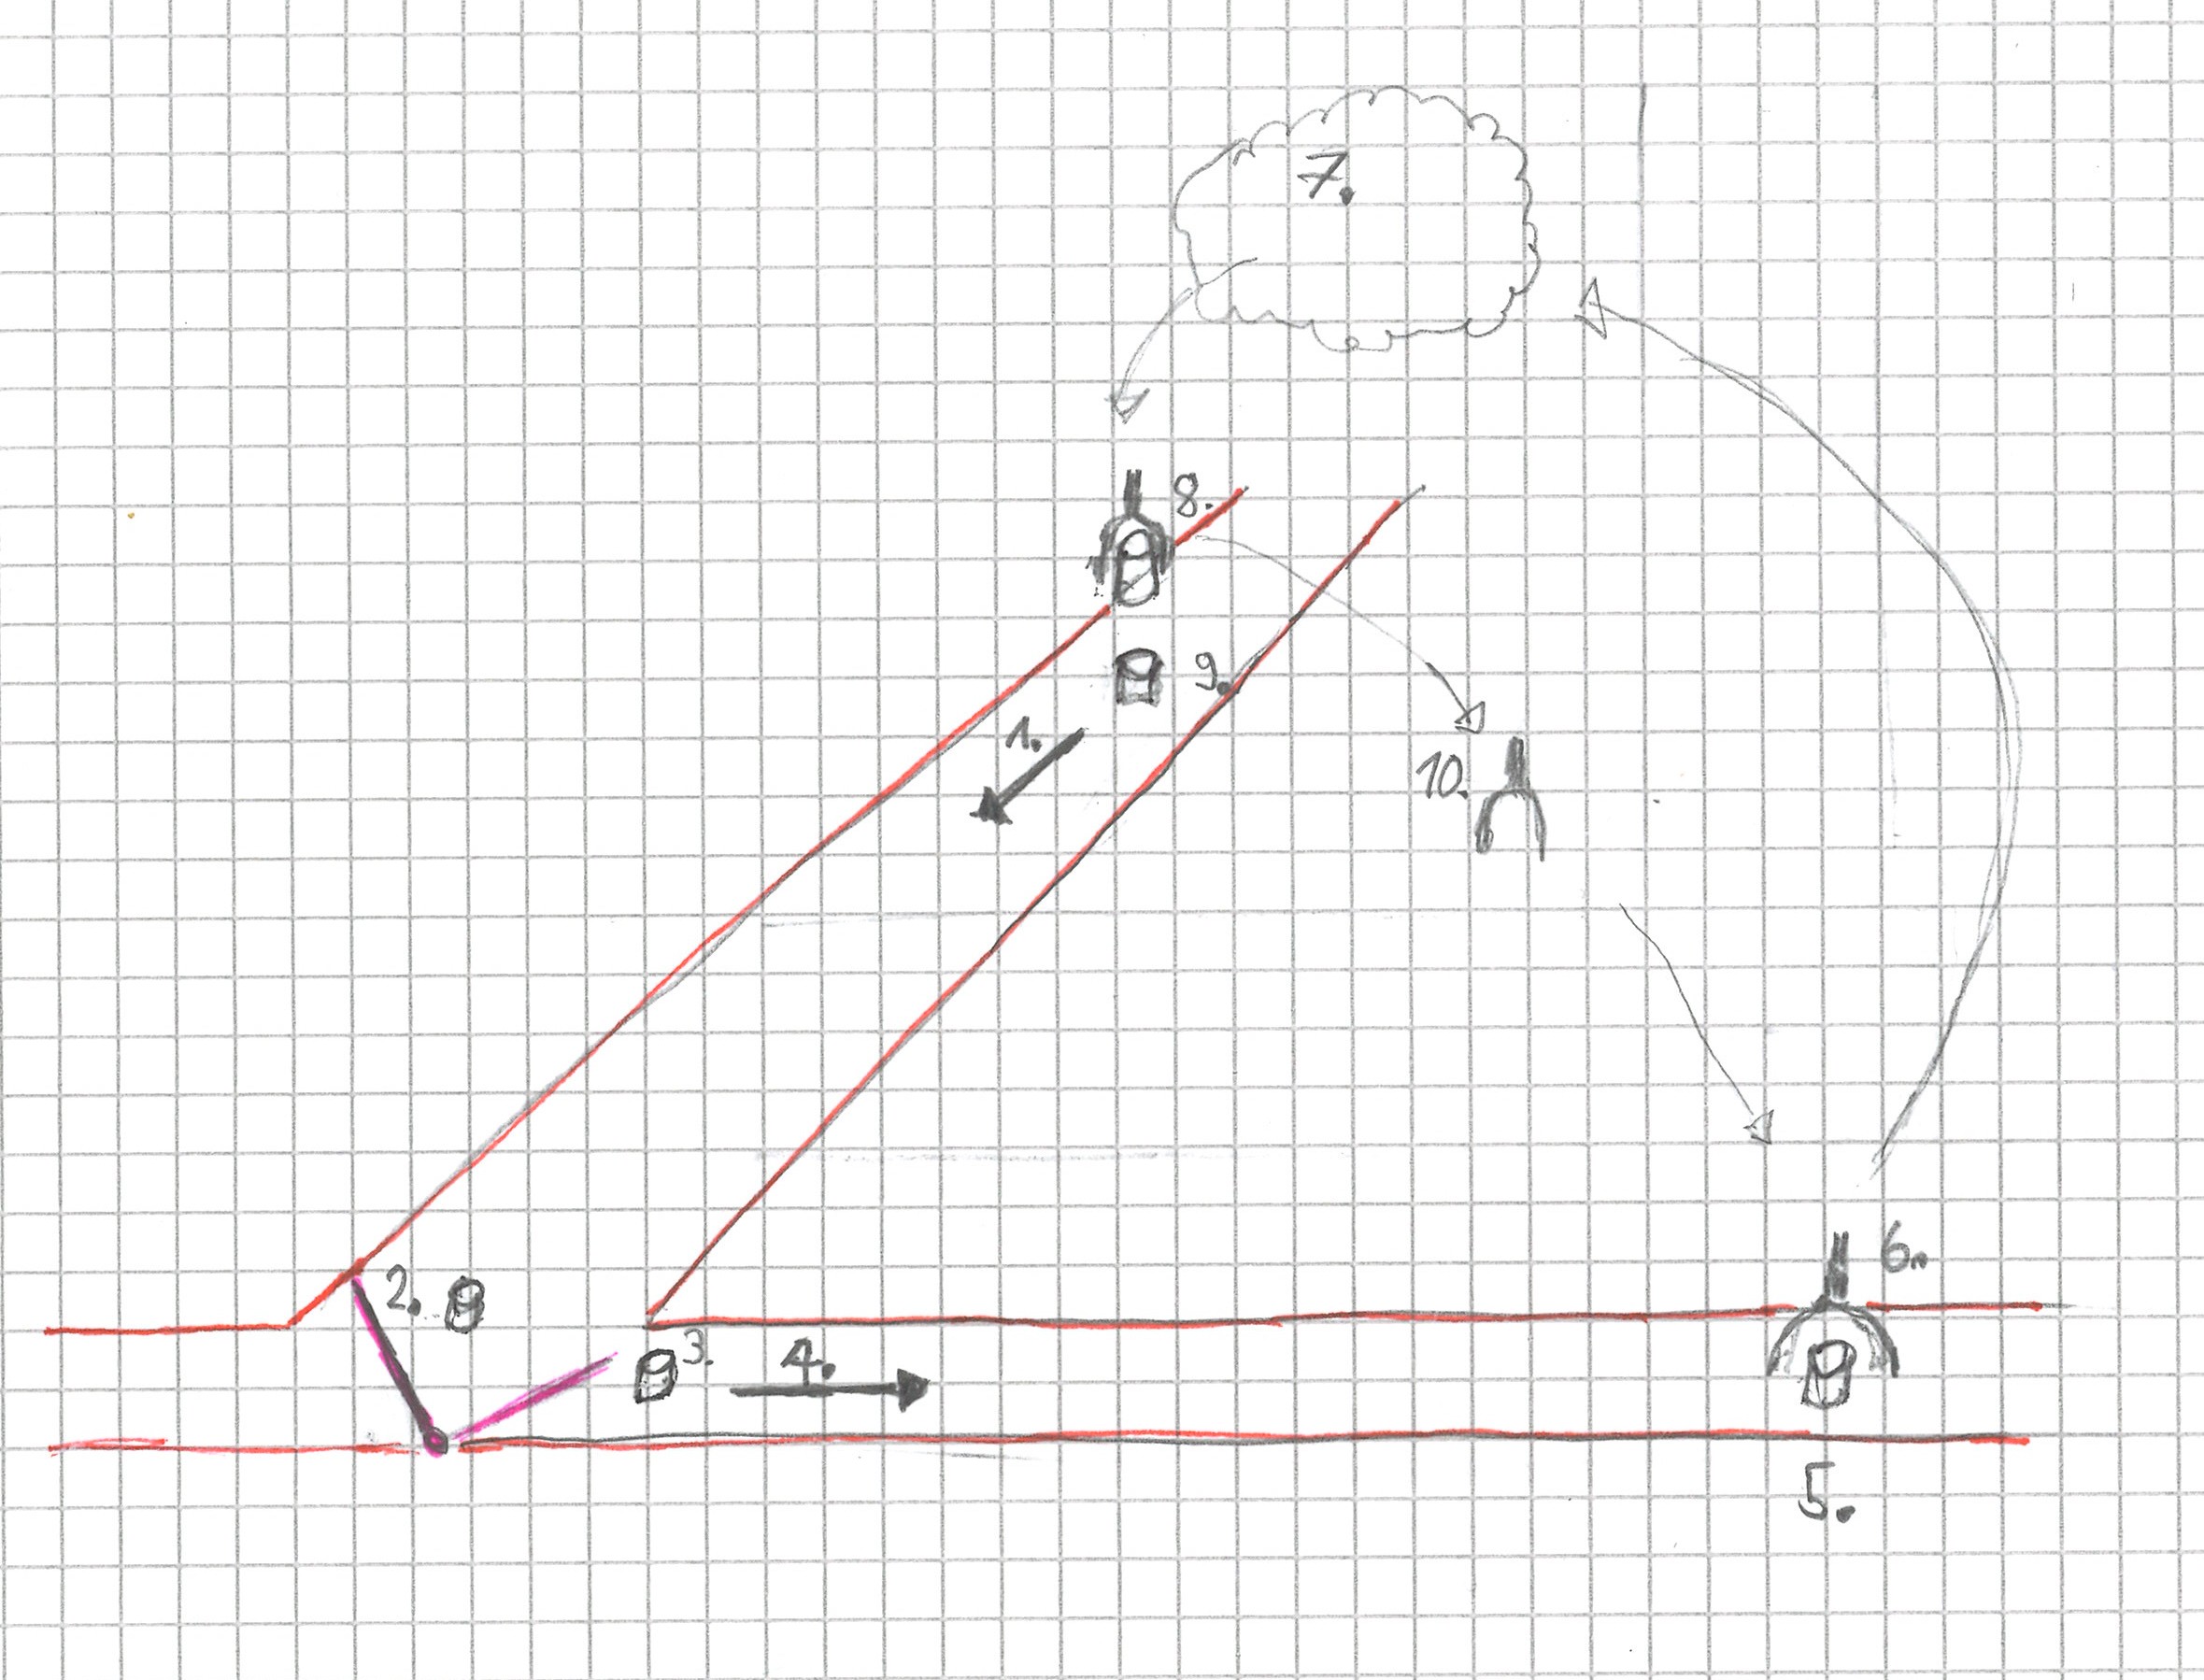 7.
8.
9.
1.
10.
6.
2.
3.
4.
5.